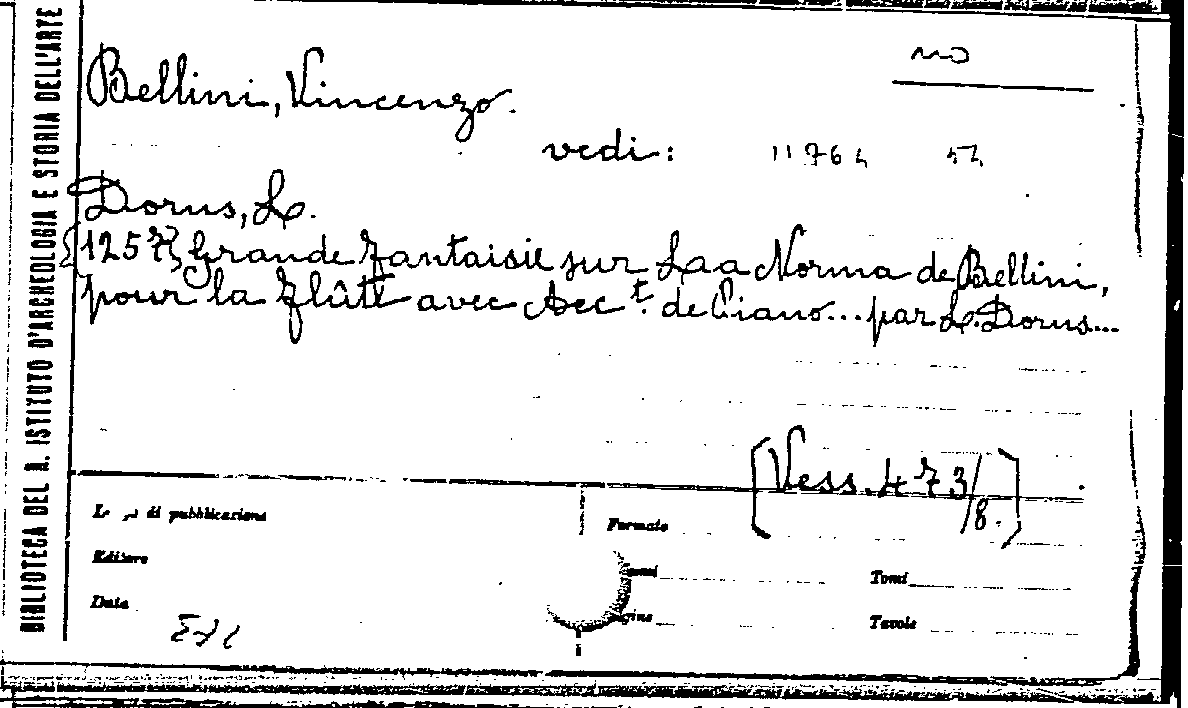 BIBLIOTECA DEL R. ISTITUTO D'ARCHEOLOGIA E STORIA DELL'ARTE
Bellini, Vincenzo.
vedi: 11764 52
Dorus, L.
{1257} Grande fantaisie sur Laa Norma de Bellini,
pour la flûte avec Acct. de Piano... par L. Dorus...
[Vess. 473/8.]
di pubblicazione
Formato
Editore
Tomi
Data
Tavole